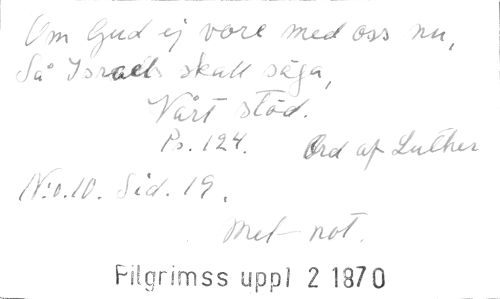 Om Gud ej vore med oss nu,
Så Israels skall säga,
Vårt stöd.
Ps. 124. Ord af Luther
N:o. 10. Sid. 19.
Met not.
Pilgrimss uppl 2 1870